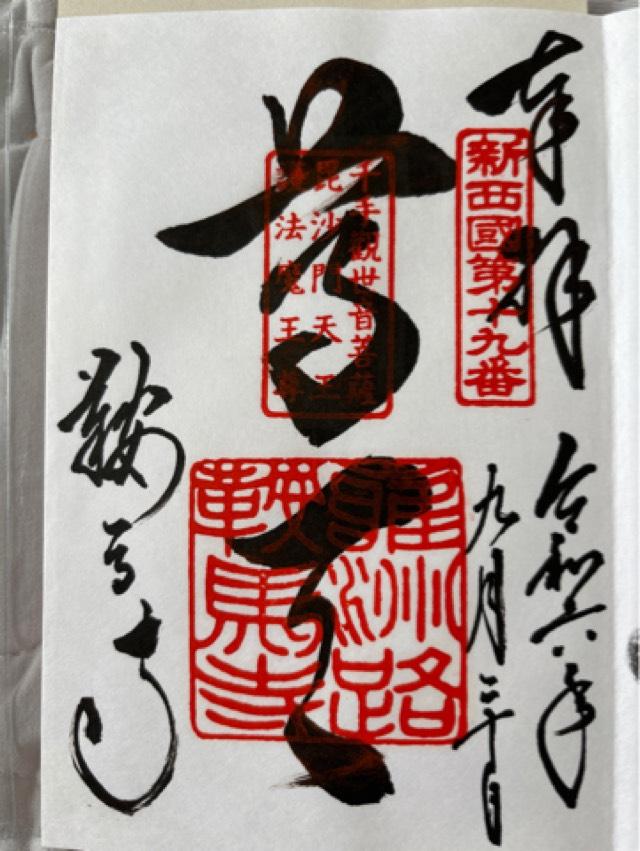 奉拝
新西國第十九番
令和六年
九月二十日
尊天
千手觀世音菩薩
毘沙門天王
護法魔王尊
雍州路
鞍馬寺
鞍馬寺